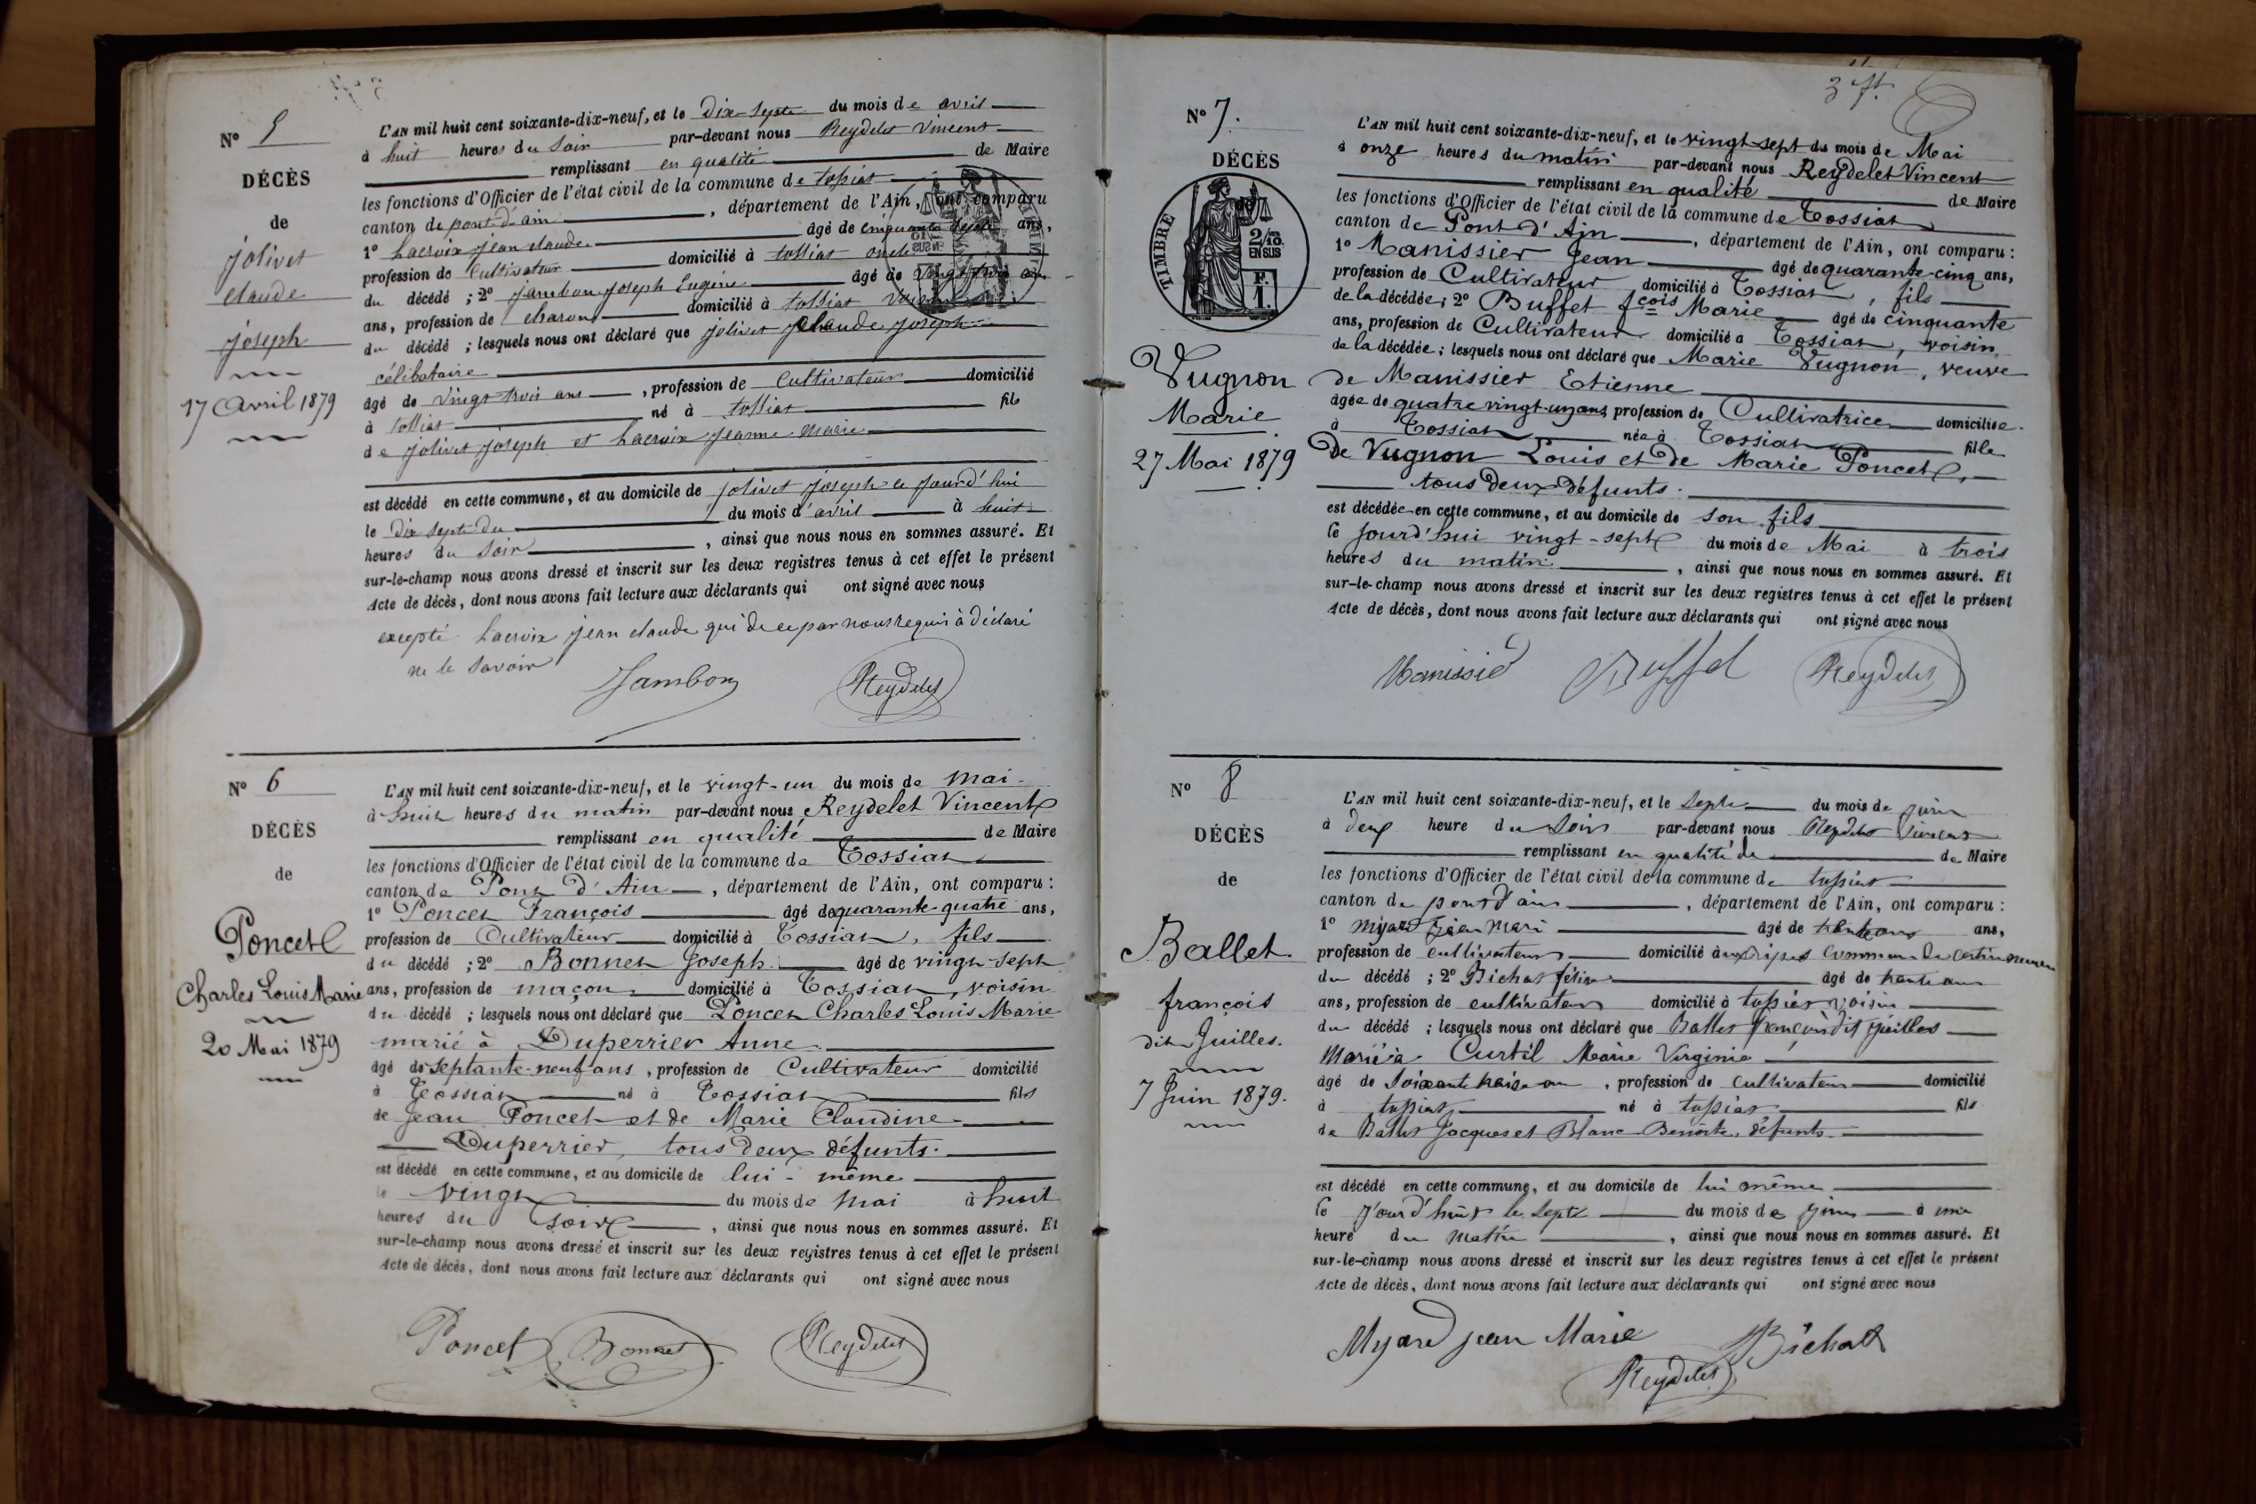 Nº 5
DÉCÈS
de
jolivet
claude
joseph
17 Avril 1879
L'AN mil huit cent soixante-dix-neuf, et le dix sept du mois de avril
à huit heures du soir par-devant nous Reydelet Vincent
remplissant en qualité de Maire
les fonctions d'Officier de l'état civil de la commune de tossiat
canton de pont d'ain, département de l'Ain, ont comparu
1º Lacroix jean claude âgé de cinquante ans,
profession de Cultivateur domicilié à tossiat oncle
du décédé ; 2º jambon joseph Eugène âgé de vingt trois
ans, profession de charon domicilié à tossiat voisin
du décédé ; lesquels nous ont déclaré que jolivet claude joseph
célibataire
âgé de vingt trois ans, profession de Cultivateur domicilié
à tossiat né à tossiat fils
de jolivet joseph et Lacroix jeanne marie
est décédé en cette commune, et au domicile de jolivet joseph ce jourd'hui
le dix sept du du mois d'avril à huit
heures du soir, ainsi que nous nous en sommes assuré. Et
sur-le-champ nous avons dressé et inscrit sur les deux registres tenus à cet effet le présent
Acte de décès, dont nous avons fait lecture aux déclarants qui ont signé avec nous
excepté Lacroix jean claude qui de ce par nous requis à déclaré
ne le savoir
Jambon Reydelet
Nº 6
DÉCÈS
de
Poncet
Charles Louis Marie
20 Mai 1879
L'AN mil huit cent soixante-dix-neuf, et le vingt-un du mois de mai
à huit heures du matin par-devant nous Reydelet Vincent
remplissant en qualité de Maire
les fonctions d'Officier de l'état civil de la commune de Tossiat
canton de Pont d'Ain, département de l'Ain, ont comparu :
1º Poncet François âgé de quarante-quatre ans,
profession de Cultivateur domicilié à Tossiat, fils
du décédé ; 2º Bonnet Joseph âgé de vingt-sept
ans, profession de maçon domicilié à Tossiat, voisin
du décédé ; lesquels nous ont déclaré que Poncet Charles Louis Marie
marié à Duperrier Anne
âgé de septante-neuf ans, profession de Cultivateur domicilié
à Tossiat né à Tossiat fils
de Jean Poncet et de Marie Claudine
Duperrier, tous deux défunts.
est décédé en cette commune, et au domicile de lui-même
le vingt du mois de mai à huit
heures du soir, ainsi que nous nous en sommes assuré. Et
sur-le-champ nous avons dressé et inscrit sur les deux registres tenus à cet effet le présent
Acte de décès, dont nous avons fait lecture aux déclarants qui ont signé avec nous
Poncet Bonnet Reydelet
3 ft.
Nº 7.
DÉCÈS
TIMBRE
2/10
EN SUS
F.
1.
Vugnon
Marie
27 Mai 1879
L'AN mil huit cent soixante-dix-neuf, et le vingt-sept du mois de Mai
à onze heures du matin par-devant nous Reydelet Vincent
remplissant en qualité de Maire
les fonctions d'Officier de l'état civil de la commune de Tossiat
canton de Pont d'Ain, département de l'Ain, ont comparu :
1º Manissier Jean âgé de quarante-cinq ans,
profession de Cultivateur domicilié à Tossiat, fils
de la décédée ; 2º Buffet fçois Marie âgé de cinquante
ans, profession de Cultivateur domicilié à Tossiat, voisin
de la décédée ; lesquels nous ont déclaré que Marie Vugnon, veuve
de Manissier Etienne
âgée de quatre vingt-un ans profession de Cultivatrice domiciliée
à Tossiat née à Tossiat fille
De Vugnon Louis et de Marie Poncet,
tous deux défunts.
est décédée en cette commune, et au domicile de son fils
le jourd'hui vingt-sept du mois de Mai à trois
heures du matin, ainsi que nous nous en sommes assuré. Et
sur-le-champ nous avons dressé et inscrit sur les deux registres tenus à cet effet le présent
Acte de décès, dont nous avons fait lecture aux déclarants qui ont signé avec nous
Manissié Buffet Reydelet
Nº 8
DÉCÈS
de
Ballet
françois
dit Juilles.
7 Juin 1879.
L'AN mil huit cent soixante-dix-neuf, et le sept du mois de juin
à deux heure du soir par-devant nous Reydelet Vincent
remplissant en qualité de de Maire
les fonctions d'Officier de l'état civil de la commune de tossiat
canton de pont d'ain, département de l'Ain, ont comparu :
1º Myard jean mari âgé de ans,
profession de cultivateur domicilié commune de
du décédé ; 2º Bichat félix âgé de trente ans
ans, profession de cultivateur domicilié à tossiat voisin
du décédé ; lesquels nous ont déclaré que Ballet françois dit juilles
Marié à Curtil Marie Virginie
âgé de soixante treize an, profession de cultivateur domicilié
à tossiat né à tossiat fils
de Ballet Jacques et Blanc Benoite, défunts
est décédé en cette commune, et au domicile de lui même
le jourd'huit le sept du mois de juin à une
heure du matin, ainsi que nous nous en sommes assuré. Et
sur-le-champ nous avons dressé et inscrit sur les deux registres tenus à cet effet le présent
Acte de décès, dont nous avons fait lecture aux déclarants qui ont signé avec nous
Myard jean Marie Bichat
Reydelet